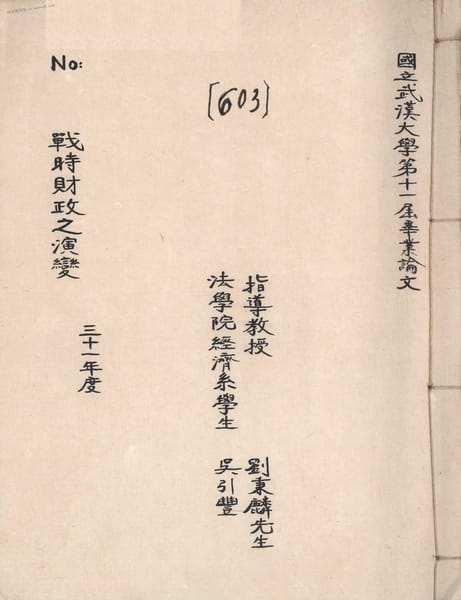 國立武漢大學第十一屆畢業論文
指導教授 劉秉麟先生
法學院經濟系學生 吳引豐
[603]
No:
戰時財政之演變
三十一年度